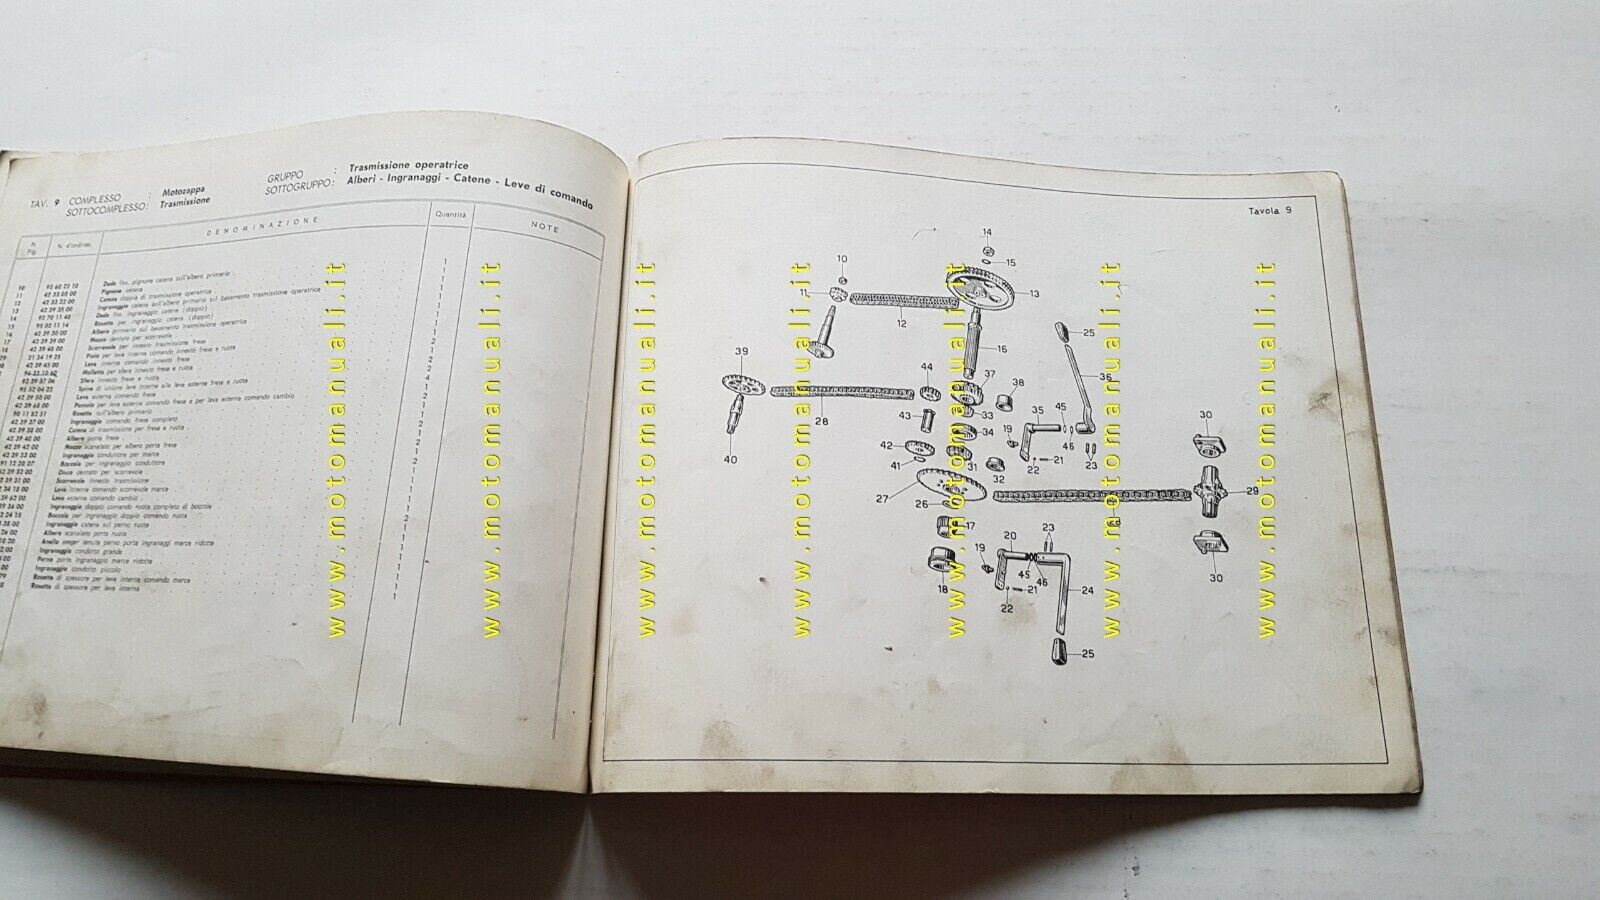 TAV. 9 COMPLESSO : Motozappa
SOTTOCOMPLESSO: Trasmissione
GRUPPO : Trasmissione operatrice
SOTTOGRUPPO: Alberi - Ingranaggi - Catene - Leve di comando
N. Fig.
N. d'ordinaz.
DENOMINAZIONE
Quantità
NOTE
10 92 60 22 10 Dado fiss. pignone catena sull'albero primario 1
11 42 33 05 00 Pignone catena 1
12 42 33 22 00 Catena doppia di trasmissione operatrice 1
13 42 39 35 00 Ingranaggio catena sull'albero primario sul basamento trasmissione operatrice 1
14 92 70 11 48 Dado fiss. ingranaggio catena (doppio)
15 95 00 11 14 Rosetta per ingranaggio catena (doppio)
16 42 39 30 00 Albero primario sul basamento trasmissione operatrice
17 42 39 39 00 Mozzo dentato per scorrevole
Scorrevole per innesto trasmissione frese
21 34 19 25 Piolo per leva interna comando innesto frese e ruota
42 39 45 00 Leva interna comando innesto frese
Molletta per sfera innesto frese e ruota
92 39 87 06 Sfera innesto frese e ruota
95 52 04 22 Spina di unione leve interne alle leve esterne frese e ruota
42 39 50 00 Leva esterna comando frese
42 39 68 00 Pomolo per leva esterna comando frese e per leva esterna comando cambio
90 11 82 51 Rosetta sull'albero primario
42 39 37 00 Ingranaggio comando frese completo
42 39 38 00 Catena di trasmissione per frese
42 39 40 00 Albero porta frese
42 39 42 00 Mozzo scanalato per albero porta frese
Ingranaggio conduttore per marce
91 12 20 07 Boccola per ingranaggio conduttore
Disco dentato per scorrevole
Scorrevole innesto trasmissione
Leva interna comando scorrevole marce
Leva esterna comando cambio
Ingranaggio doppio comando ruota completo di boccole
Boccola per ingranaggio doppio comando ruota
Ingranaggio catena sul perno ruota
Albero scanalato porta ruota
Anello seeger tenuta perno porta ingranaggi marce ridotte
Ingranaggio condotto grande
Perno porta ingranaggio marce ridotte
Ingranaggio condotto piccolo
Rosetta di spessore per leva interna comando marce
Rosetta di spessore per leva interna
Tavola 9
14
15
10
11
12
13
25
16
36
39
44
37
38
28
43
33
35
45
30
40
34
19
46
42
41
31
32
22
21
23
27
29
26
17
20
23
19
45
46
30
18
22
21
24
25
www.motomanuali.it
www.motomanuali.it
www.motomanuali.it
www.motomanuali.it
www.motomanuali.it
www.motomanuali.it
www.motomanuali.it